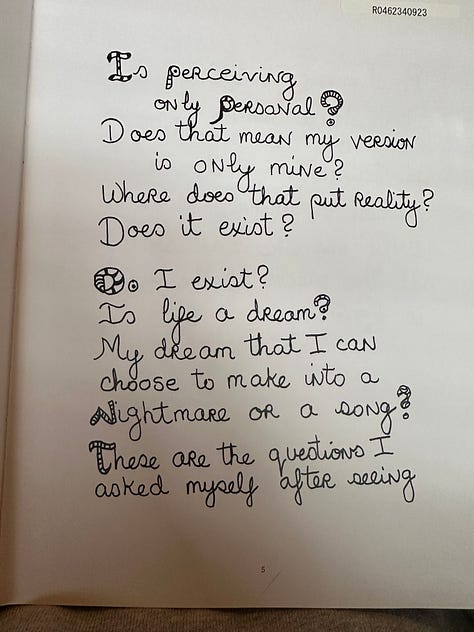 R0462340923
Is perceiving
only personal?
Does that mean my version
is only mine?
Where does that put reality?
Does it exist?
Do I exist?
Is life a dream?
My dream that I can
choose to make into a
Nightmare or a song?
These are the questions I
asked myself after seeing
5